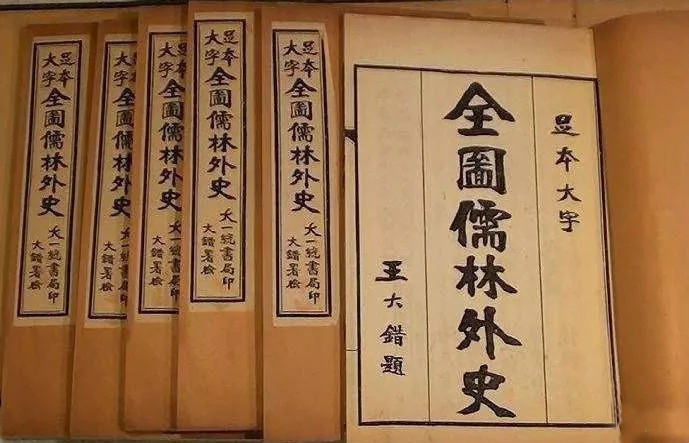 足本大字
全圖儒林外史
王大錯題
足本
大字
全圖儒林外史
大一統書局印
大錯署檢
足本
大字
全圖儒林外史
大一統書局印
大錯署檢
足本
大字
全圖儒林外史
大一統書局印
大錯署檢
本
大字
全圖儒林外史
大一統書局印
大錯署檢
足本
大字
全圖儒林外史
大一統書局印
大錯署檢